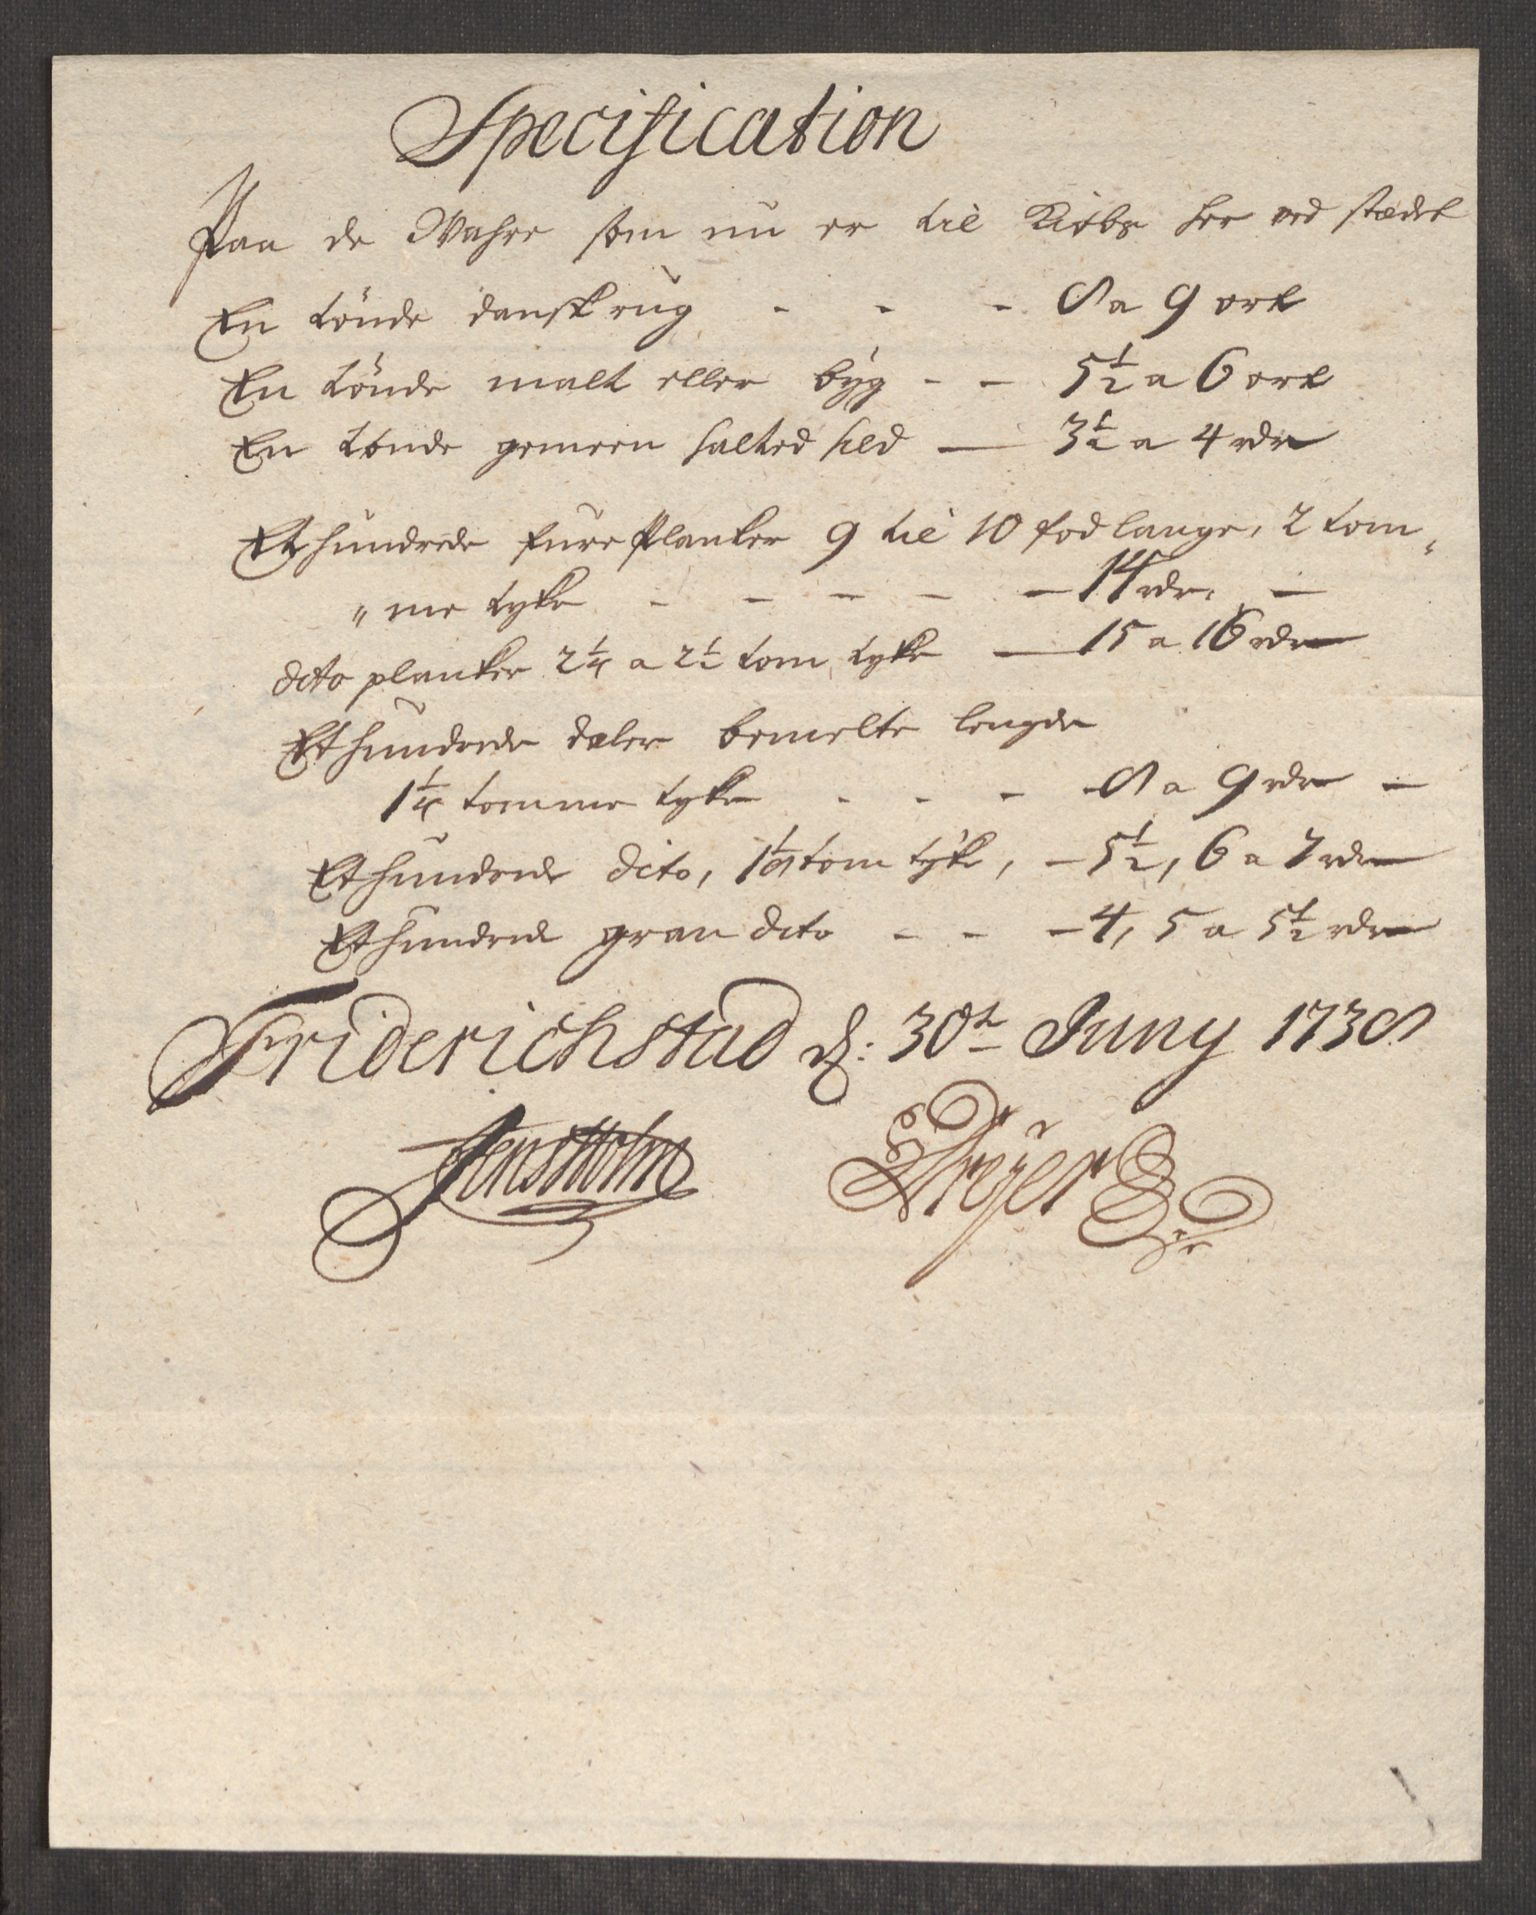 Specification
Paa de Wahre som nu er til Kiøbs her ved stædet
En tönde dansk rug - - - 8 a 9 ort
En tönde malt eller byg - - 5½ a 6 ort
En tønde gemeen salted sild — 3½ a 4 rdr
Et hundrede fure Planker 9 til 10 fod lange, 2 tom„
„me tyke - - - - — 14 rdr. —
dito planker 2¼ a 2½ tom tyke — 15 a 16 rdr
Et hundrede deler bemelte lengde
1¼ tomme tyke - - - 8 a 9 rdr —
Et hundrede dito, 1⅛ tom tyke, — 5½, 6 a 7 rdr
Et hundrede gran dito - - — 4, 5 a 5½ rdr
Friderichstad d: 30t Juny 1738
Jens Holm Dreÿer